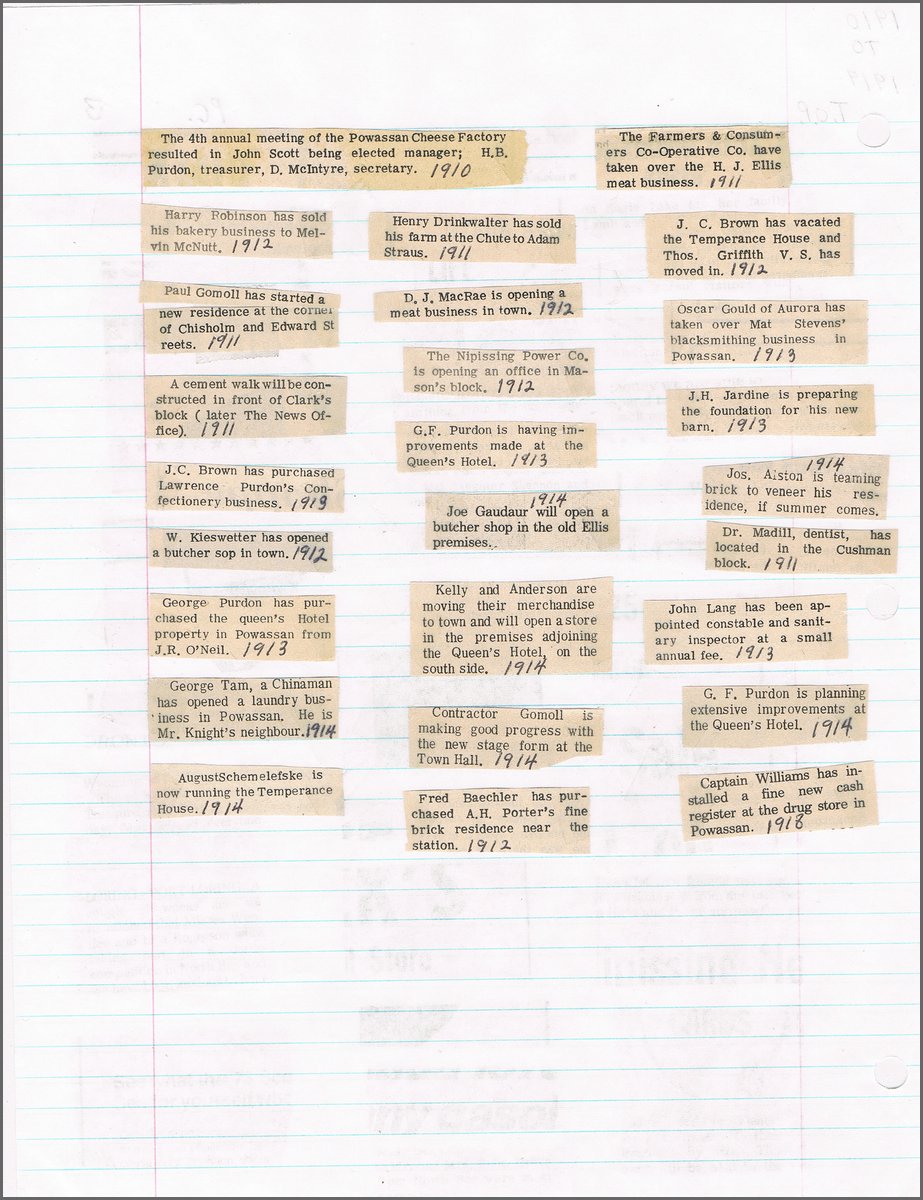 The 4th annual meeting of the Powassan Cheese Factory
resulted in John Scott being elected manager; H.B.
Purdon, treasurer, D. McIntyre, secretary. 1910
The Farmers & Consum-
ers Co-Operative Co. have
taken over the H. J. Ellis
meat business. 1911
Harry Robinson has sold
his bakery business to Mel-
vin McNutt. 1912
Paul Gomoll has started a
new residence at the corner
of Chisholm and Edward St
reets. 1911
A cement walk will be con-
structed in front of Clark's
block ( later The News Of-
fice). 1911
J.C. Brown has purchased
Lawrence Purdon's Con-
fectionery business. 1913
W. Kieswetter has opened
a butcher sop in town. 1912
George Purdon has pur-
chased the queen's Hotel
property in Powassan from
J.R. O'Neil. 1913
George Tam, a Chinaman
has opened a laundry bus-
iness in Powassan. He is
Mr. Knight's neighbour. 1914
AugustSchemelefske is
now running the Temperance
House. 1914
Henry Drinkwalter has sold
his farm at the Chute to Adam
Straus. 1911
D. J. MacRae is opening a
meat business in town. 1912
The Nipissing Power Co.
is opening an office in Ma-
son's block. 1912
G.F. Purdon is having im-
provements made at the
Queen's Hotel. 1913
1914
Joe Gaudaur will open a
butcher shop in the old Ellis
premises.
Kelly and Anderson are
moving their merchandise
to town and will open a store
in the premises adjoining
the Queen's Hotel, on the
south side. 1914
Contractor Gomoll is
making good progress with
the new stage form at the
Town Hall. 1914
Fred Baechler has pur-
chased A.H. Porter's fine
brick residence near the
station. 1912
J. C. Brown has vacated
the Temperance House and
Thos. Griffith V. S. has
moved in. 1912
Oscar Gould of Aurora has
taken over Mat Stevens'
blacksmithing business in
Powassan. 1913
J.H. Jardine is preparing
the foundation for his new
barn. 1913
1914
Jos. Alston is teaming
brick to veneer his res-
idence, if summer comes.
Dr. Madill, dentist, has
located in the Cushman
block. 1911
John Lang has been ap-
pointed constable and sanit-
ary inspector at a small
annual fee. 1913
G. F. Purdon is planning
extensive improvements at
the Queen's Hotel. 1914
Captain Williams has in-
stalled a fine new cash
register at the drug store in
Powassan. 1918